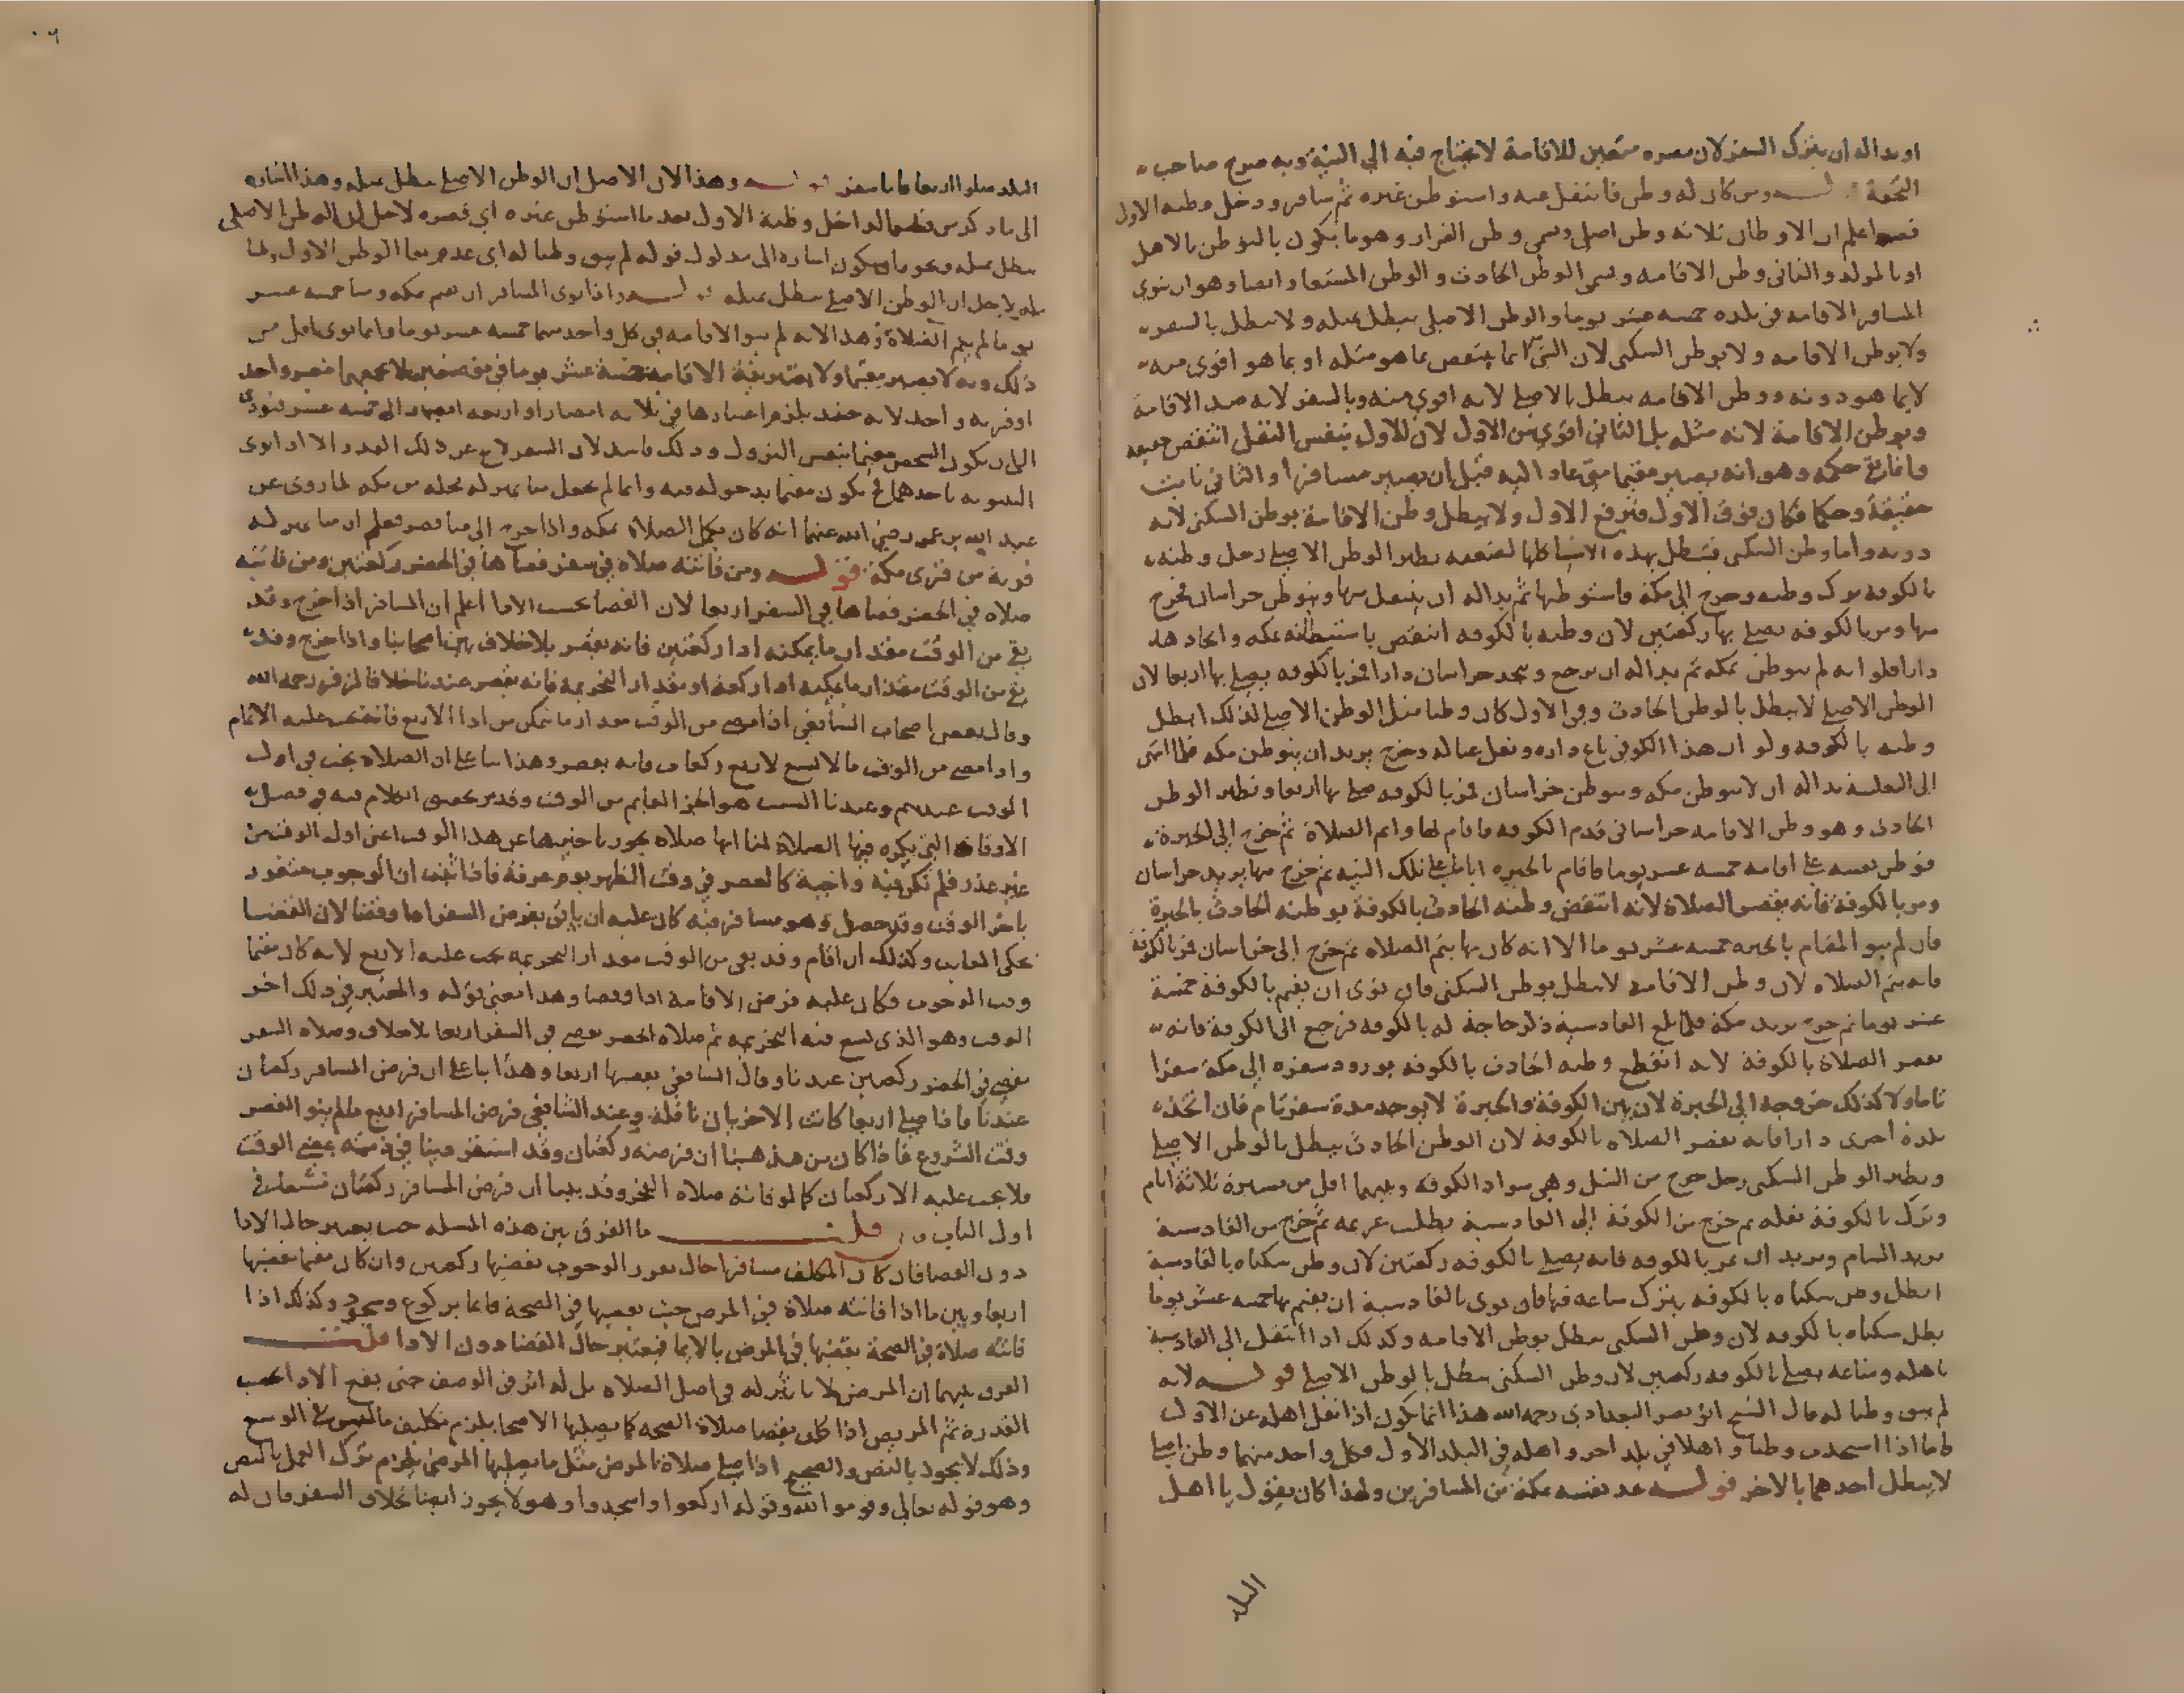 او بدا له ان يترك السفر لان مصره متعين للاقامة لا يحتاج فيه الى النية وبه صرح صاحب
التحفة قوله ومن كان له وطن فانتقل عنه واستوطن غيره ثم سافر ودخل وطنه الاول
قصر اعلم ان الاوطان ثلاثة وطن اصلي ويسمى وطن القرار وهو ما يكون بالتوطن بالاهل
او بالمولد والثاني وطن الاقامه ويسمى الوطن الحادث والوطن المستعار ايضا وهو ان ينوي
المسافر الاقامه في بلده خمسه عشر يوما والوطن الاصلي يبطل بمثله ولا يبطل بالسفر
ولا بوطن الاقامه ولا بوطن السكنى لان الشي انما ينتقض بما هو مثله او بما هو اقوى منه
لا بما هو دونه ووطن الاقامه يبطل بالاصلي لانه اقوى منه وبالسفر لانه ضد الاقامة
وبوطن الاقامة لانه مثله بل الثاني اقوى من الاول لان الاول بنفس النقل انتقض حقيقه
وانما بقي حكمه وهو انه يصير مقيما متى عاد اليه قبل ان يصير مسافرا والثاني ثابت
حقيقة وحكما فكان فوق الاول فيرفع الاول ولا يبطل وطن الاقامة بوطن السكنى لانه
دونه واما وطن السكنى فيبطل بهذه الاشيا كلها لضعفه نظير الوطن الاصلي رجل وطنه
بالكوفة ترك وطنه وخرج الى مكة واستوطنها ثم بدا له ان ينتقل منها ويتوطن خراسان فخرج
منها ومر بالكوفه يصلي بها ركعتين لان وطنه بالكوفه انتقض باستيطانه بمكه واتخاذ هذه
دارا فلو انه لم يتوطن بمكه ثم بدا له ان يرجع ويتخذ خراسان دارا فمر بالكوفه يصلي بها اربعا لان
الوطن الاصلي لا يبطل بالوطن الحادث وفي الاول كان وطنا مثل الوطن الاصلي لذلك ابطل
وطنه بالكوفه ولو ان هذا الكوفي باع داره ونقل عياله وخرج يريد ان يتوطن مكه فلما انتهى
الى الثعلبية بدا له ان لا يتوطن مكه ويتوطن خراسان فمر بالكوفه صلى بها اربعا ونظير الوطن
الحادث وهو وطن الاقامه خراساني قدم الكوفه فاقام بها واتم الصلاة ثم خرج الى الحيرة
فوطن نفسه على اقامه خمسه عشر يوما فاقام بالحيره اياما على تلك النيه ثم خرج منها يريد خراسان
ومر بالكوفة فانه يقصر الصلاة لانه انتقض وطنه الحادث بالكوفة بوطنه الحادث بالحيرة
فان لم ينو المقام بالحيره خمسه عشر يوما الا انه كان بها يتم الصلاه ثم خرج الى خراسان فمر بالكوفة
فانه يتم الصلاه لان وطن الاقامه لا يبطل بوطن السكنى فان نوى ان يقيم بالكوفة خمسة
عشر يوما ثم خرج يريد مكة فلما بلغ القادسية ذكر حاجة له بالكوفه فرجع الى الكوفة فانه
يقصر الصلاة بالكوفة لانه انقطع وطنه الحادث بالكوفه بورود سفره الى مكة سفرا
تاما ولا كذلك خروجه الى الحيرة لان بين الكوفة والحيرة لا يوجد مدة سفر تام فان اتخذ
بلدة اخرى دارا فانه يقصر الصلاه بالكوفة لان الوطن الحادث يبطل بالوطن الاصلي
ونظير الوطن السكنى رجل خرج من النيل وهي سواد الكوفه وبينهما اقل من مسيرة ثلاثة ايام
ونزل بالكوفة ثقله ثم خرج من الكوفة الى القادسية يطلب غريمه ثم خرج من القادسية
يريد الشام ويريد ان يمر بالكوفه فانه يصلي بالكوفه ركعتين لان وطن سكناه بالقادسية
ابطل وطن سكناه بالكوفه بترك ساعه فيها فان نوى بالقادسية ان يقيم بها خمسه عشر يوما
بطل سكناه بالكوفه لان وطن السكنى يبطل بوطن الاقامه وكذلك اذا انتقل الى القادسية
باهله ومتاعه يصلي بالكوفه ركعتين لان وطن السكنى يبطل بالوطن الاصلي قوله لانه
لم يبق وطنا له قال الشيخ ابو نصر البغدادي رحمه الله هذا انما يكون اذا نقل اهله عن الاول
فاما اذا استحدث وطنا واهلا في بلد اخر واهله في البلد الاول فكل واحد منهما وطن اصلي
لا يبطل احدهما بالاخر قوله عد نفسه بمكة من المسافرين ولهذا كان يقول يا اهل
البلد
البلد صلوا اربعا فانا سفر قوله وهذا لان الاصل ان الوطن الاصلي يبطل بمثله وهذا اشاره
الى ما ذكر من الداخل وطنه الاول بعد ما استوطن غيره اي قصره لاجل ان الوطن الاصلي
يبطل بمثله ويجوز ان يكون اشاره الى مدلول قوله لم يبق وطنا له اي عدم بقا الوطن الاول وطنا
له لاجل ان الوطن الاصلي يبطل بمثله قوله واذا نوى المسافر ان يقيم بمكه ومنا خمسه عشر
يوما لم يتم الصلاة وهذا لانه لم ينو الاقامه في كل واحد منهما خمسه عشر يوما وانما نوى اقل من
ذلك وبه لا يصير مقيما ولا يعتبر نية الاقامة خمسة عشر يوما في موضعين لا يجمعهما مصر واحد
او قريه واحد لانه حينئذ يلزم اعتبارها في ثلاثه امصار او اربعه امصار الى خمسه عشر فيودي
الى ان يكون الشخص مقيما بنفس النزول وذلك فاسد لان السفر لا يخ عن ذلك القدر الا اذا نوى
البيتوته باحدهما فح يكون مقيما بدخوله فيه وانما لم يجعل منا بمنزله محله من مكه لما روي عن
عبد الله بن عمر رضي الله عنهما انه كان يكمل الصلاة بمكه واذا خرج الى منا قصر فعلم ان منا بمنزله
قرية من قرى مكة قوله ومن فاتته صلاة في سفر قضاها في الحضر ركعتين ومن فاتته
صلاه في الحضر قضاها في السفر اربعا لان القضا بحسب الادا اعلم ان المسافر اذا خرج وقد
بقي من الوقت مقدار ما يمكنه ادا ركعتين فانه يقصر بلا خلاف بين اصحابنا واذا خرج وقد
بقي من الوقت مقدار ما يمكنه ادا ركعة او مقدار التحريمه فانه يقصر عندنا خلافا لزفر رحمه الله
وقال بعض اصحاب الشافعي اذا مضى من الوقت مقدار ما يتمكن من ادا الاربع فانه يجب عليه الاتمام
واذا مضى من الوقت ما لا يسع لاربع ركعات فانه يقصر وهذا بنا على ان الصلاة يجب في اول
الوقت عندهم وعندنا السبب هو الجز القايم من الوقت وقد مر تحقيق الكلام فيه في فصل
الاوقات التي يكره فيها الصلاة لنا انها صلاه يجوز تاخيرها عن هذا الوقت اعني اول الوقت من
غير عذر فلم تكن فيه واجبة كالعصر في وقت الظهر يوم عرفة فاذا ثبت ان الوجوب متعلق
باخر الوقت وقد حصل وهو مسافر فيه كان عليه ان ياتي بفرض السفر ادا وقضا لان القضا
يحكي الفايت وكذلك ان اقام وقد بقي من الوقت مقدار التحريمه يجب عليه الاربع لانه كان مقيما
وقت الوجوب فكان عليه فرض الاقامة ادا وقضا وهذا معنى قوله والمعتبر في ذلك اخر
الوقت وهو الذي يسع فيه التحريمه ثم صلاه الحضر يقضى في السفر اربعا بلا خلاف وصلاه السفر
يقضى في الحضر ركعتين عندنا وقال الشافعي يقضيها اربعا وهذا بنا على ان فرض المسافر ركعتان
عندنا فاذا صلى اربعا كانت الاخريان نافلة وعند الشافعي فرض المسافر اربع ما لم ينو القصر
وقت الشروع فاذا كان من مذهبنا ان فرضه ركعتان وقد استقر دينا في ذمته بمضي الوقت
فلا يجب عليه الا ركعتان كما لو فاتته صلاه الفجر وقد بينا ان فرض المسافر ركعتان في
اول الباب فان قلت ما الفرق بين هذه المسله حيث يعتبر حال الادا
دون القضا فان كان المكلف مسافرا حال تقرر الوجوب يقضيها ركعتين وان كان مقيما يقضيها
اربعا وبين ما اذا فاتته صلاة في المرض حيث يقضيها في الصحة قائما بركوع وسجود وكذلك اذا
فاتته صلاة في الصحة يقضيها في المرض بالايما فيعتبر حال القضا دون الادا قلت
الفرق بينهما ان المرض لا تاثير له في اصل الصلاه بل له اثر في الوصف حتى يقع الادا بحسب
القدرة ثم المريض اذا كان يقضي صلاة الصحه كما يصليها الاصحا يلزم تكليف ما ليس في الوسع
وذلك لا يجوز بالنص والصحيح اذا صلى صلاة المرض مثل ما يصليها المرضى يلزم ترك العمل بالنص
وهو قوله تعالى وقوموا لله وقوله اركعوا واسجدوا وهو لا يجوز ايضا بخلاف السفر فان له